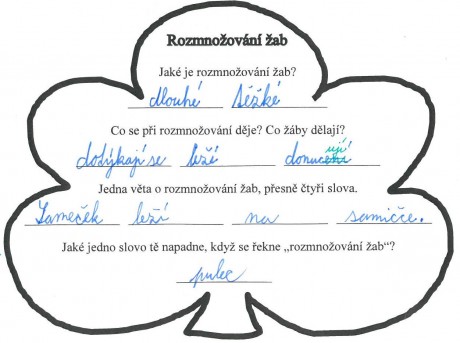 Rozmnožování žab
Jaké je rozmnožování žab?
dlouhé těžké
Co se při rozmnožování děje? Co žáby dělají?
dotýkají se leží donucují
Jedna věta o rozmnožování žab, přesně čtyři slova.
Sameček leží na samičce.
Jaké jedno slovo tě napadne, když se řekne „rozmnožování žab“?
pulec